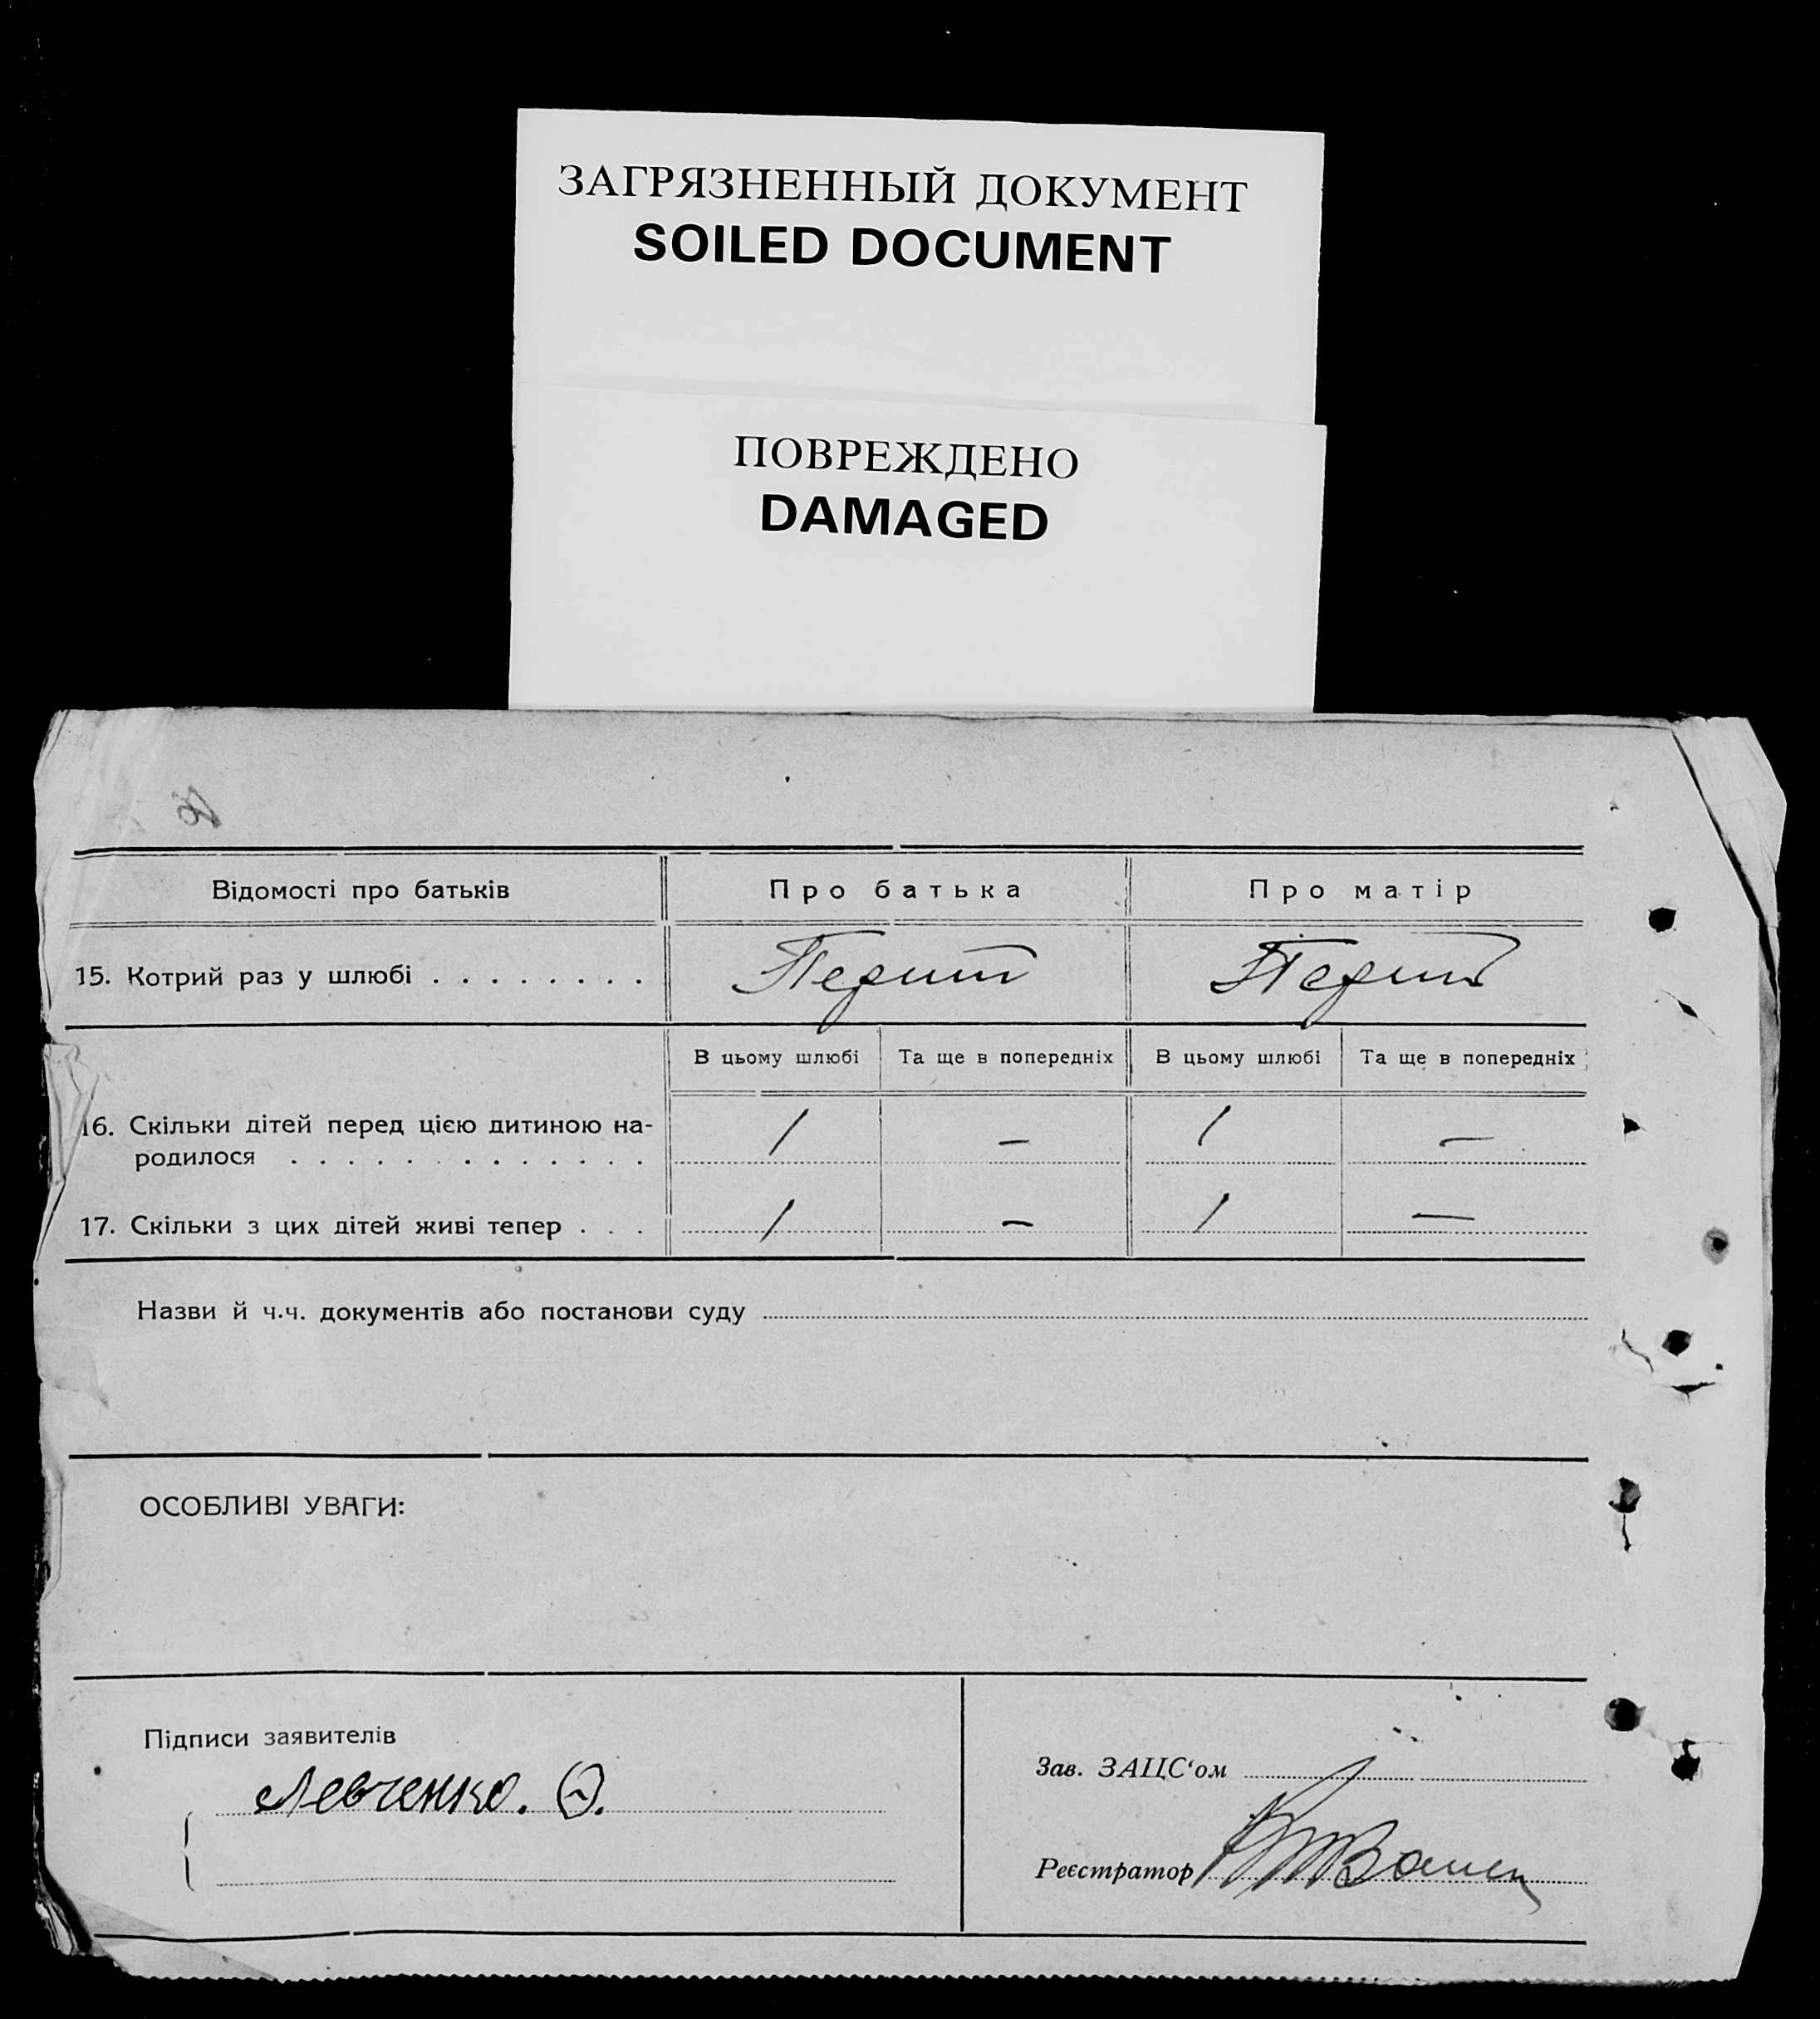 ЗАГРЯЗНЕННЫЙ ДОКУМЕНТ
SOILED DOCUMENT
ПОВРЕЖДЕНО
DAMAGED
Відомості про батьків Про батька Про матір
15. Котрий раз у шлюбі . . . . . . . . Перший Перший
В цьому шлюбі Та ще в попередніх В цьому шлюбі Та ще в попередніх
16. Скільки дітей перед цією дитиною на-
родилося . . . . . . . . . . . . . 1 — 1 —
17. Скільки з цих дітей живі тепер . . . 1 — 1 —
Назви й ч.ч. документів або постанови суду
ОСОБЛИВІ УВАГИ:
Підписи заявителів
Левченко. Ф.
Зав. ЗАЦС‘ом
Реєстратор